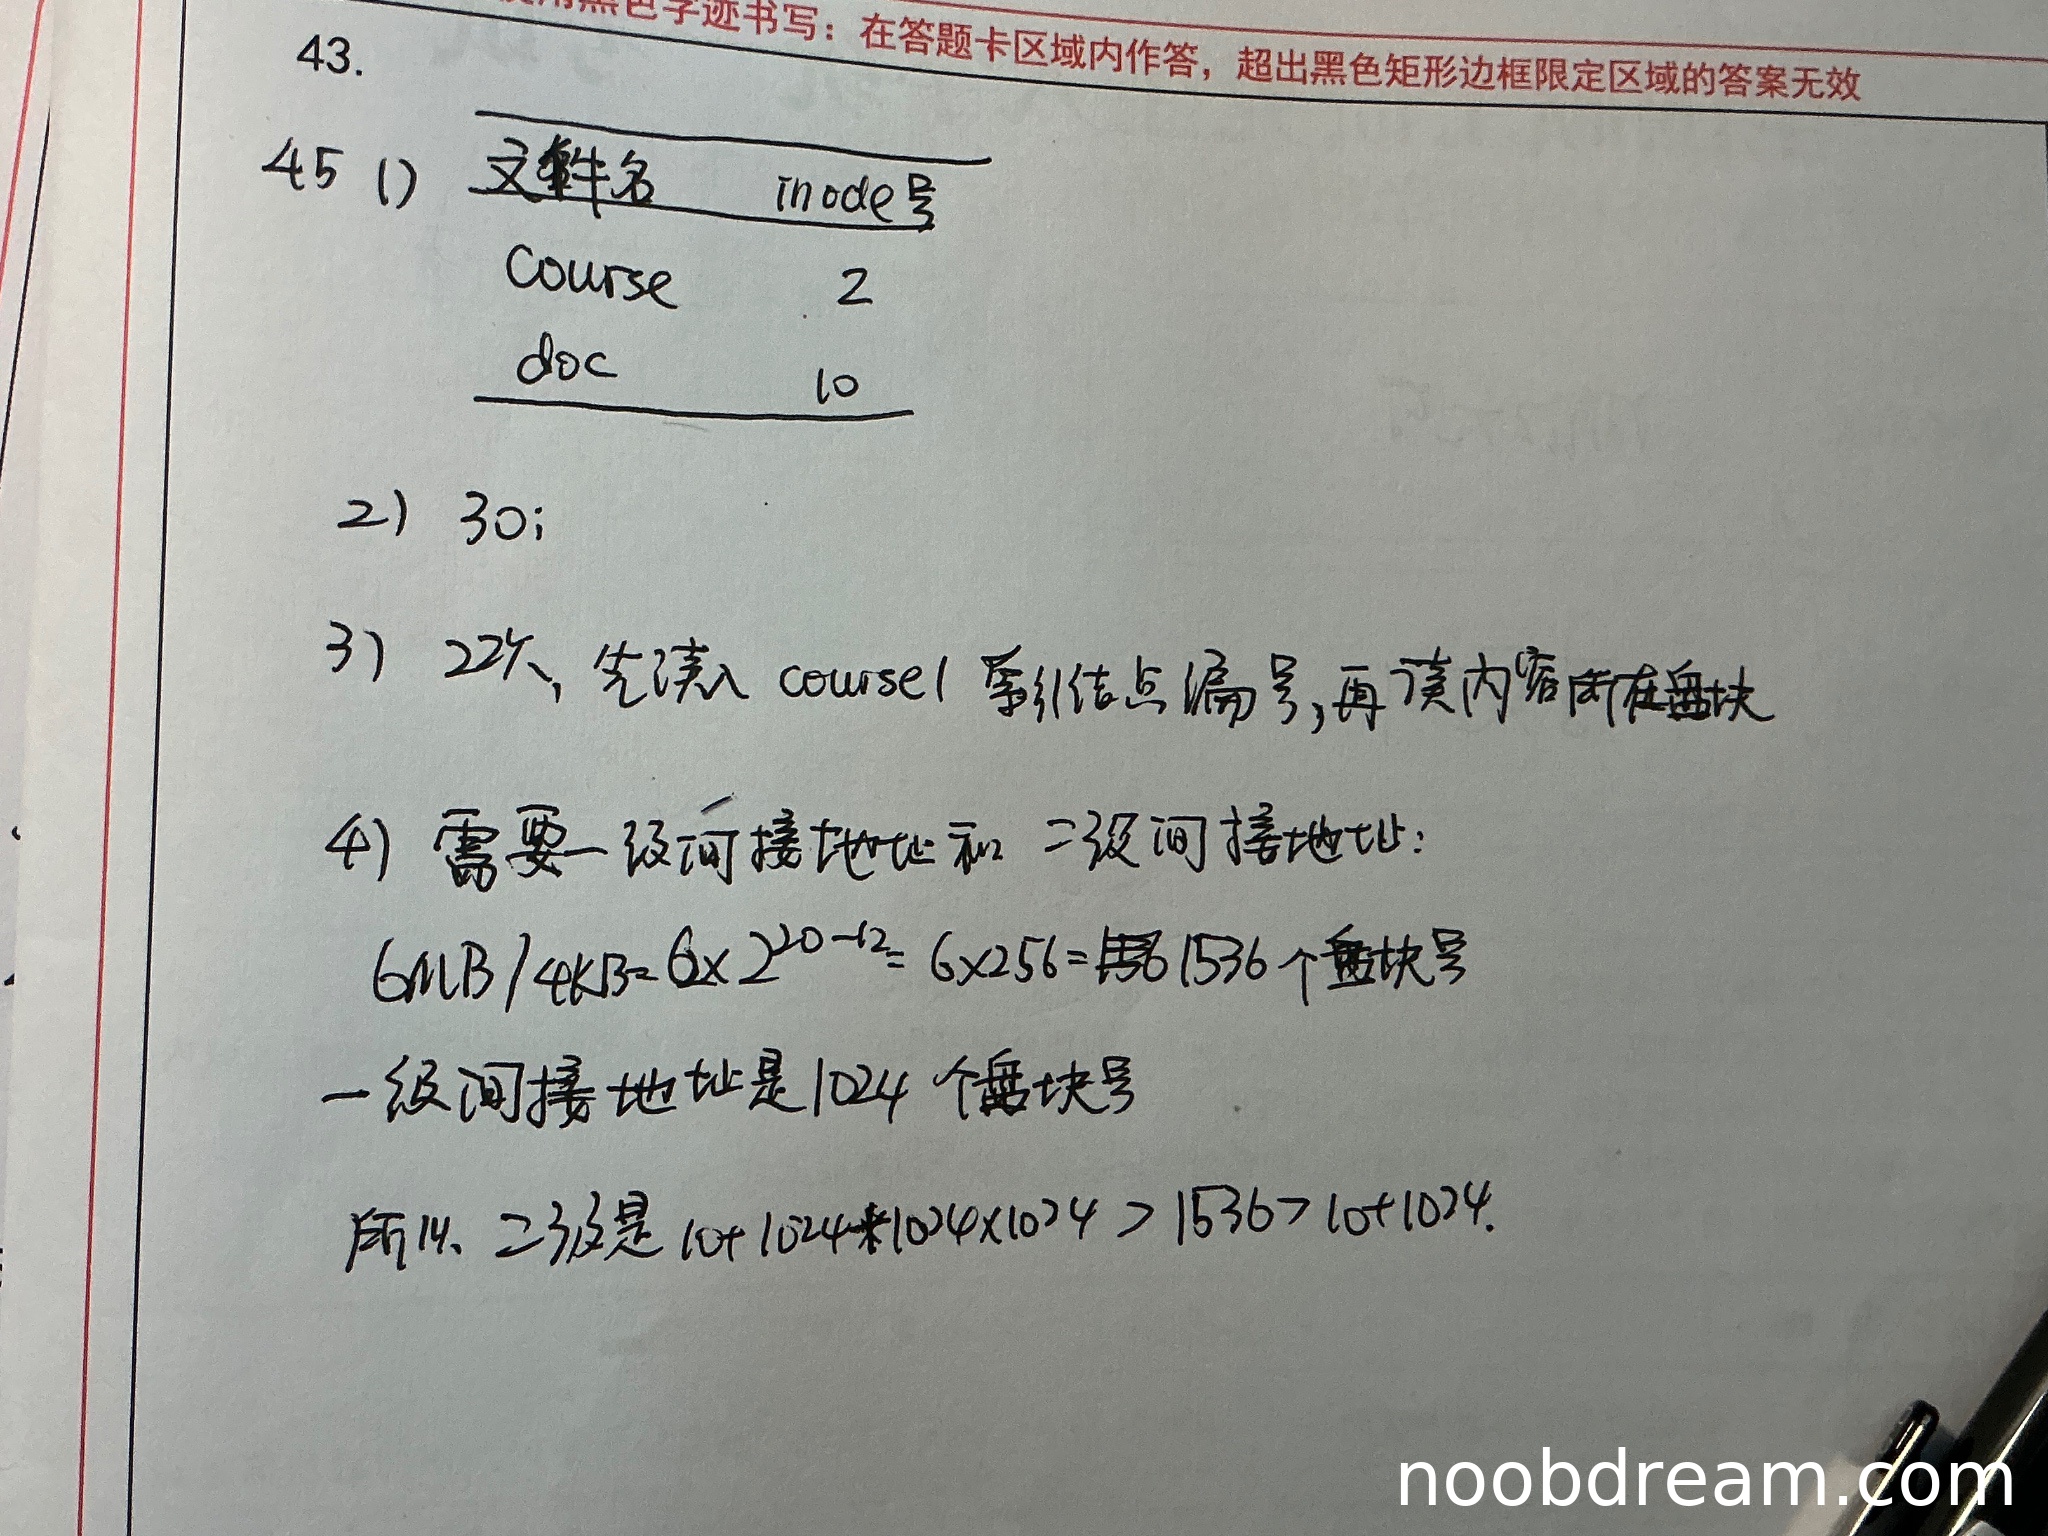 使用黑色字迹书写：在答题卡区域内作答，超出黑色矩形边框限定区域的答案无效
43.
45 1) 文件名 inode号
course 2
doc 10
2) 30;
3) 22次, 先读入 course1 索引结点编号,再读内容所在盘块
4) 需要一级间接地址和 二级间接地址:
6MB/4KB=6×2^20-12=6×256=1536个盘块号
一级间接地址是1024 个盘块号
所以、二级是 10+1024+1024×1024 > 1536 > 10+1024.
noobdream.com